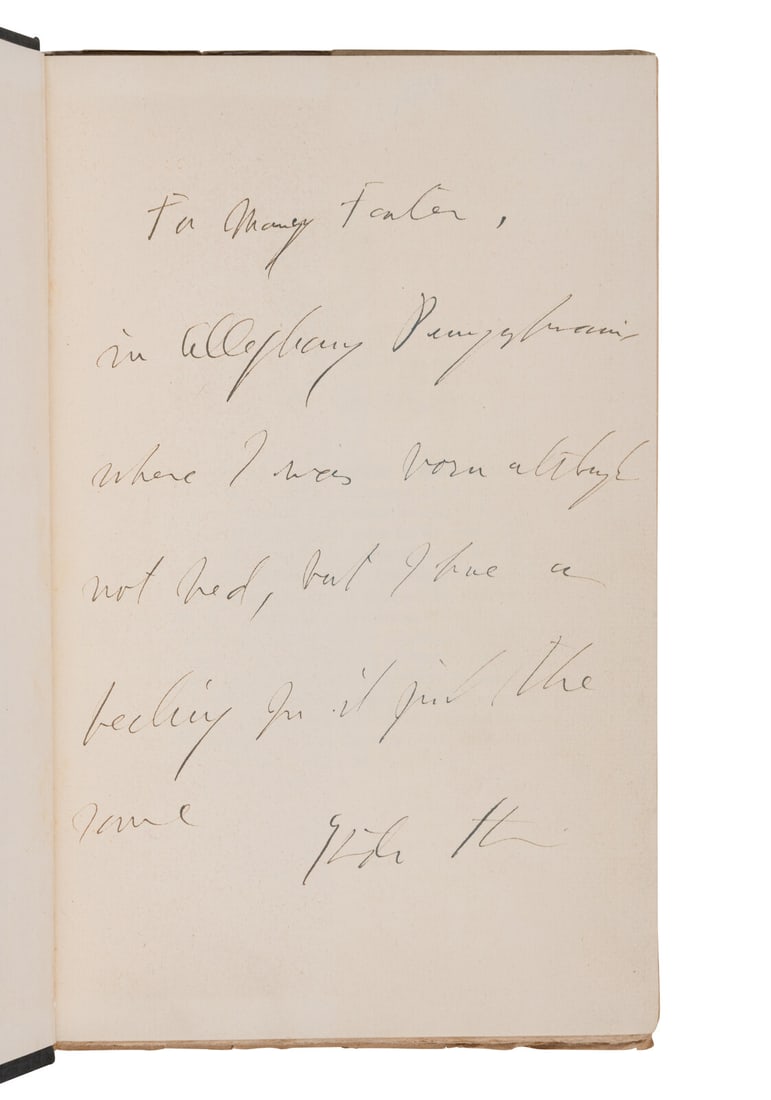 For Nancy Foster,
in Alleghany Pennsylvania
where I was born although
not bred, but I have a
feeling for it just the
same
Gtde Stn